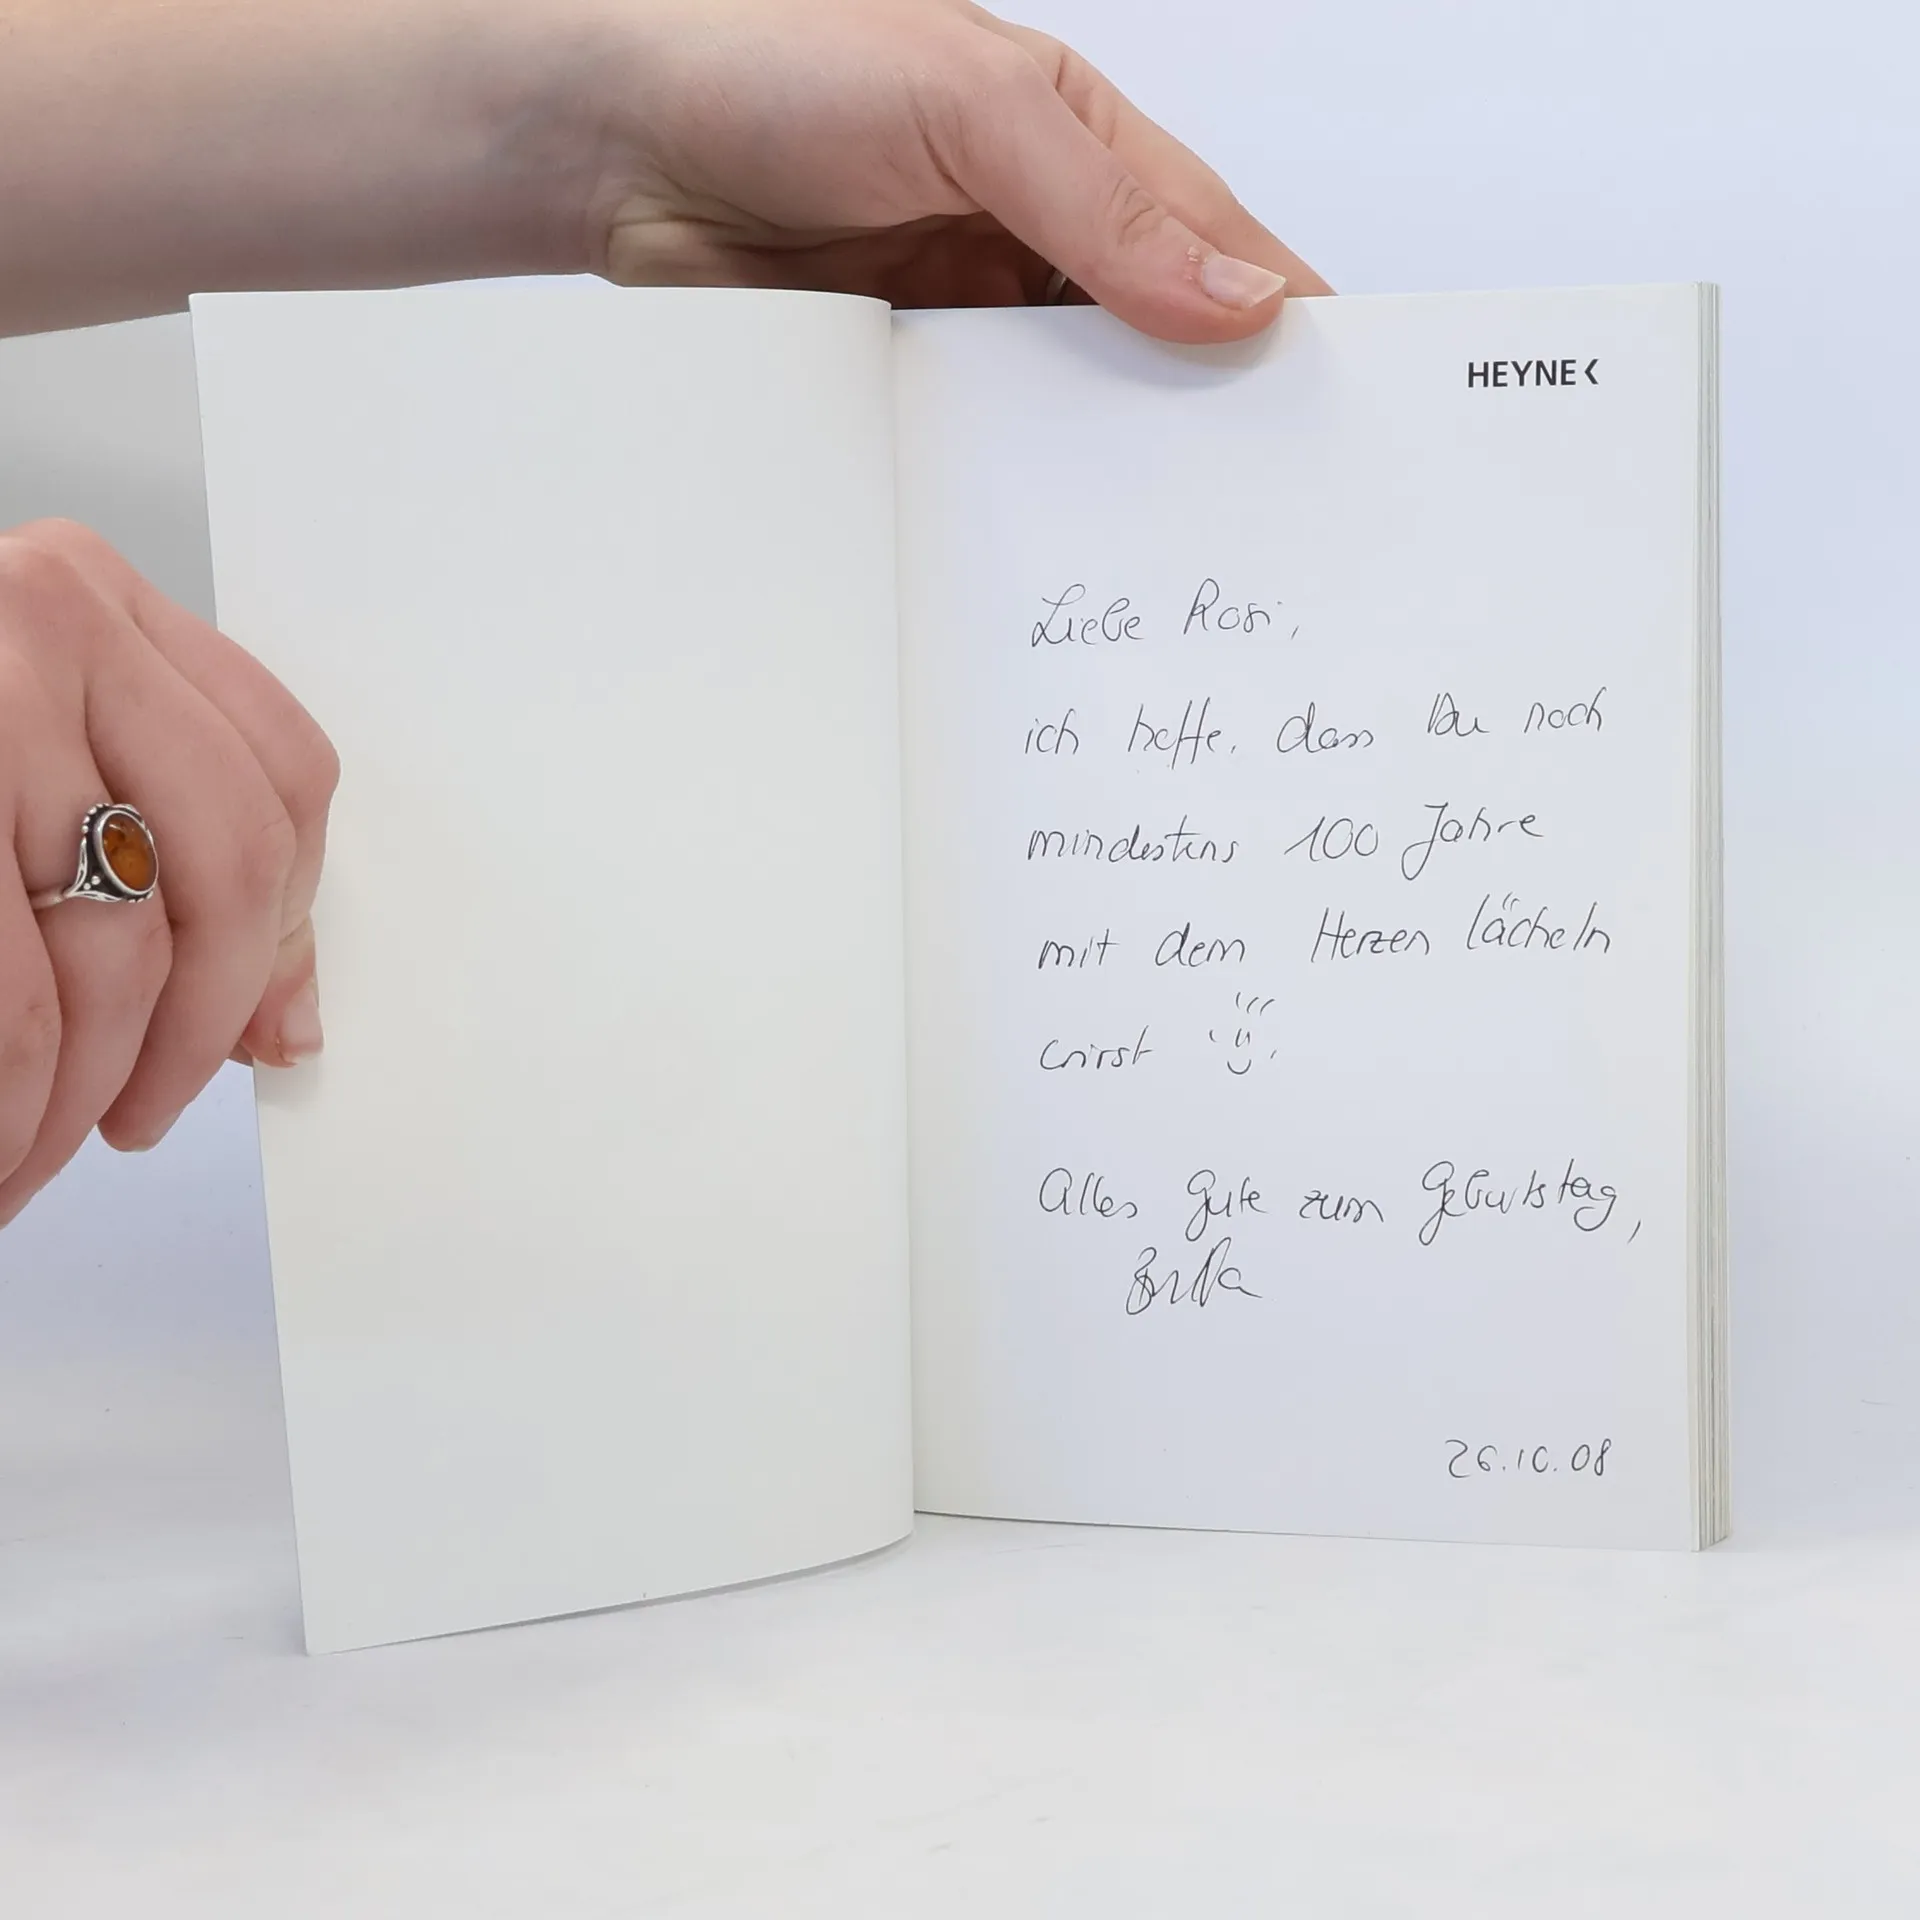 HEYNE<
Liebe Rosi,
ich hoffe, dass Du noch
mindestens 100 Jahre
mit dem Herzen lächeln
wirst
Alles Gute zum Geburtstag,
26.10.08